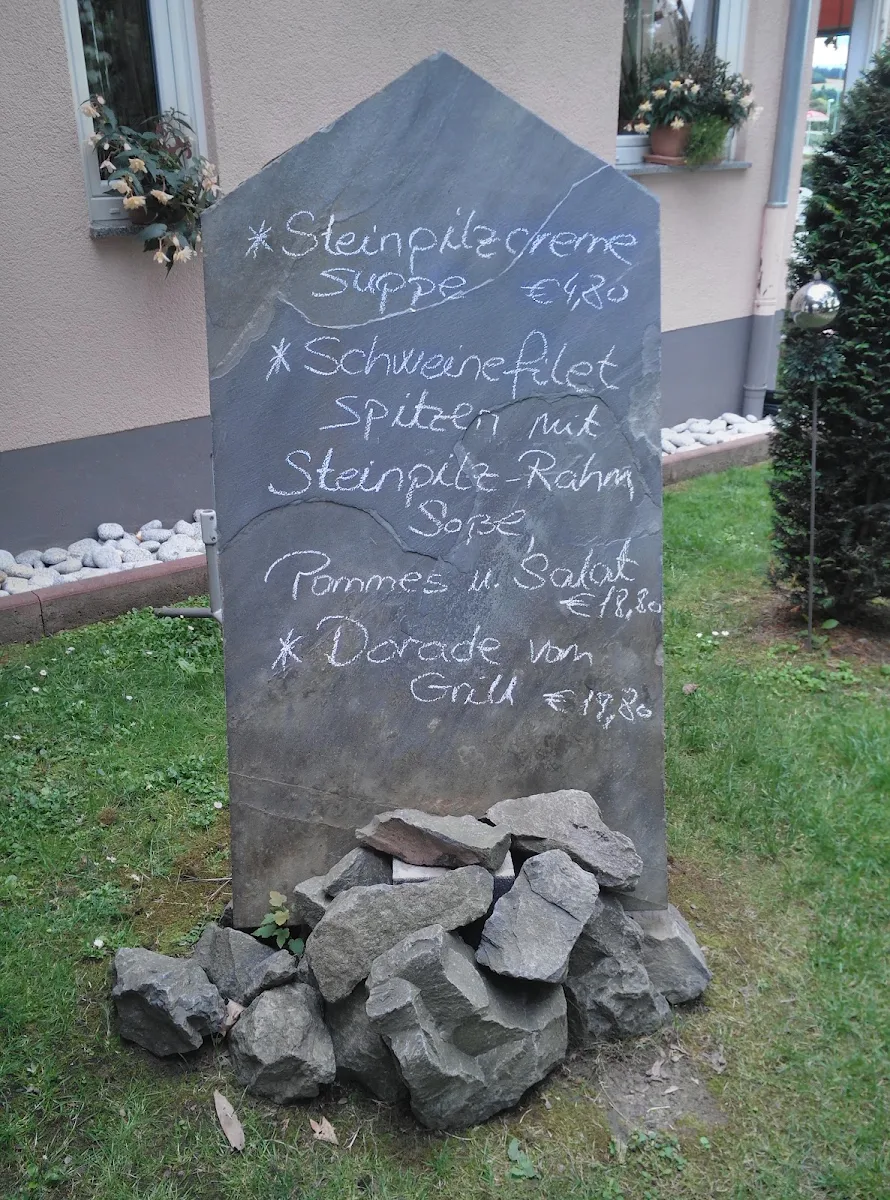 * Steinpilzcreme
suppe €4,80
* Schweinefilet
spitzen mit
Steinpilz-Rahm
Soße,
Pommes u. Salat
€18,80
* Dorade vom
Grill €19,80